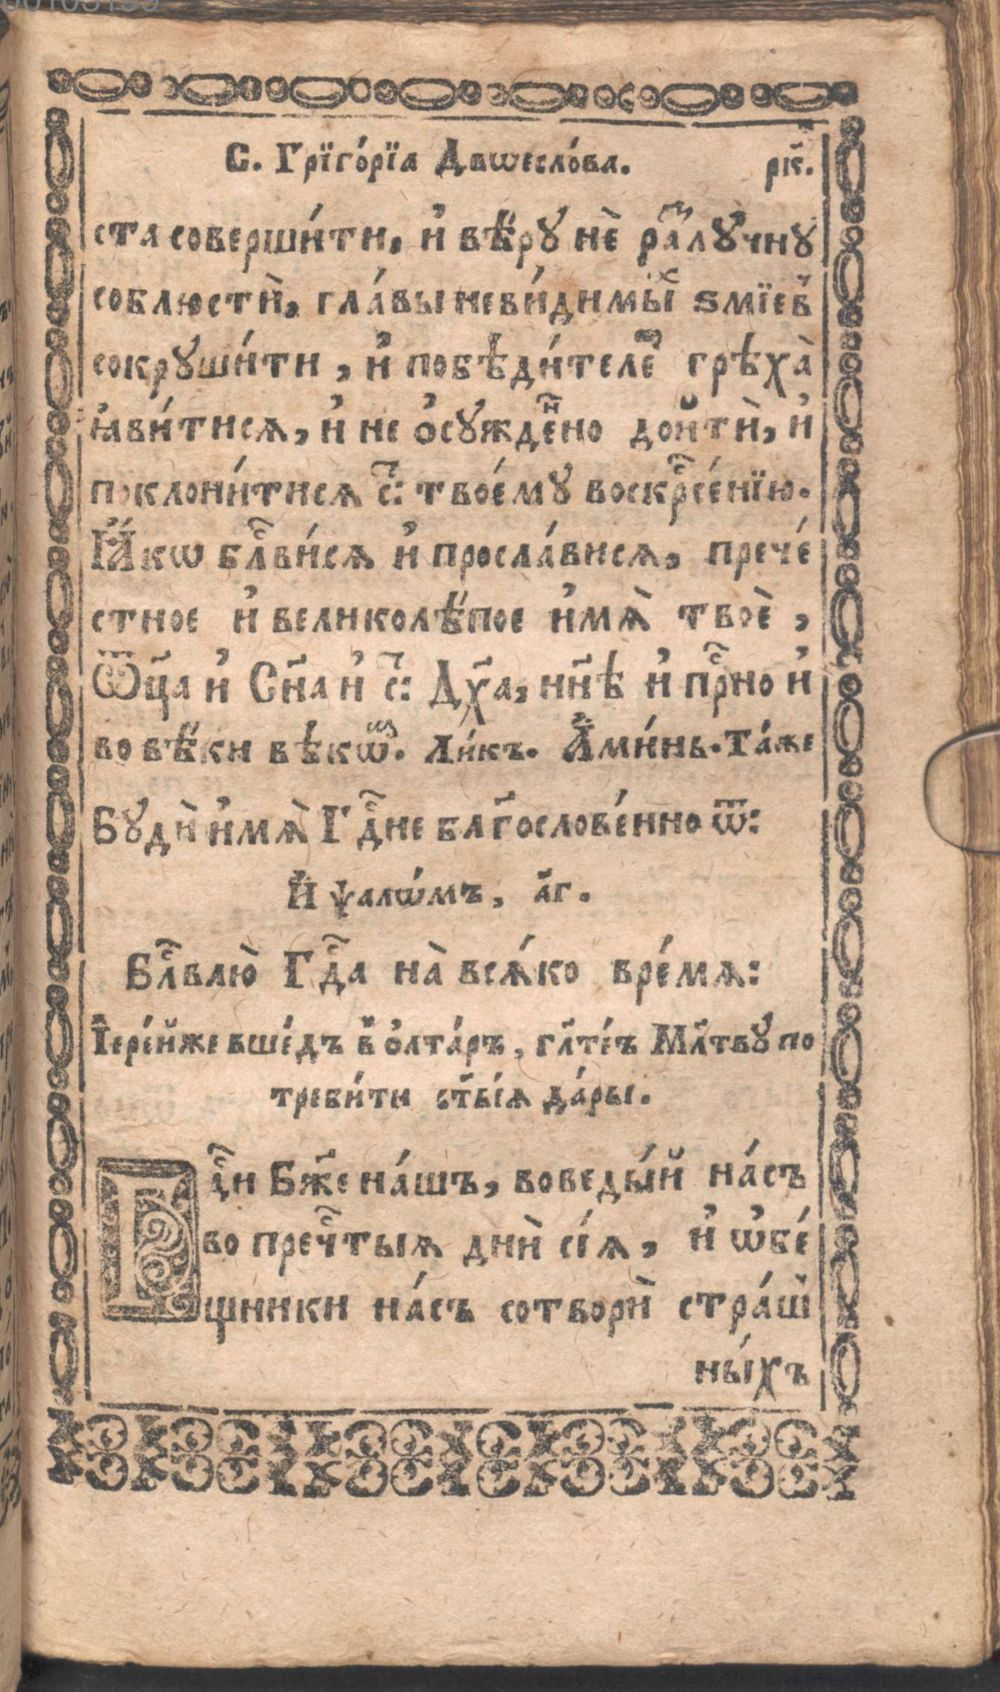 00103199
С. Грїго́рїа Двѡесло́ва. рк҃.
ста соверши́ти, и҆ вѣ́рꙋ нѐ раⷥлꙋ́чнꙋ
соблюстѝ, гла́вы неви́димыⷯ ѕмїеⷡ҇
сокрꙋши́ти, и҆ побѣди́телеⷨ грѣха̀
ꙗ҆ви́тисѧ, и҆ не ѻ҆сꙋжде́нⷩо дойтѝ, и҆
поклони́тисѧ с҃: твоемꙋ́ воскрⷭ҇е́нїю.
Ꙗ҆́кѡ бл҃ви́сѧ и҆ просла́висѧ, прече́
стное и҆ великолѣ́пое и҆мѧ̀ твоѐ,
Ѿц҃а и҆ Сн҃а и҆ с҃: Дх҃а, нн҃ѣ и҆ прⷭ҇но и҆
во вѣ́ки вѣ́кѡⷡ. Ли́къ. А҆ми́нь. Та́же
Бꙋ́дѝ и҆мѧ̀ Гдⷭ҇не благⷭ҇ослове́нно ѿ:
И҆ ѱалѡ́мъ, л҃г.
Бл҃влю̀ Гдⷭ҇а на̀ всѧ́ко вре́мѧ:
І҆ере́йже вше́дъ в̾ о҆лта́ръ, гл҃те́ъ Мл҃твꙋ́ по
треби́ти ст҃ы́ѧ да́ры.
Гдⷭ҇и Бж҃е на́шъ, воведы́й на́съ
во преч҃тыѧ днѝ сі́ѧ, и҆ ѡ҆бе́
щники на́съ сотворѝ стра́ш
ны́хъ